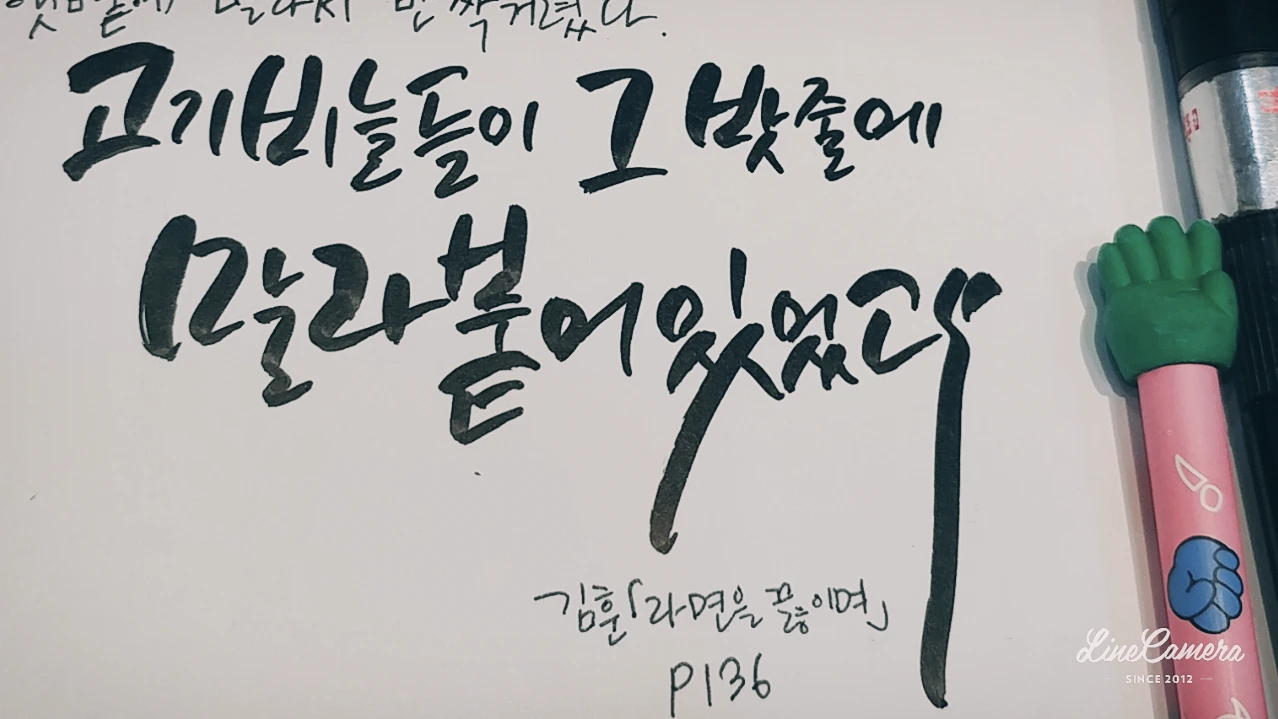 번쩍거렸다.
고기비늘들이 그 밧줄에
말라붙어 있었고
김훈「라면을 끓이며」
P136
LineCamera
SINCE 2012